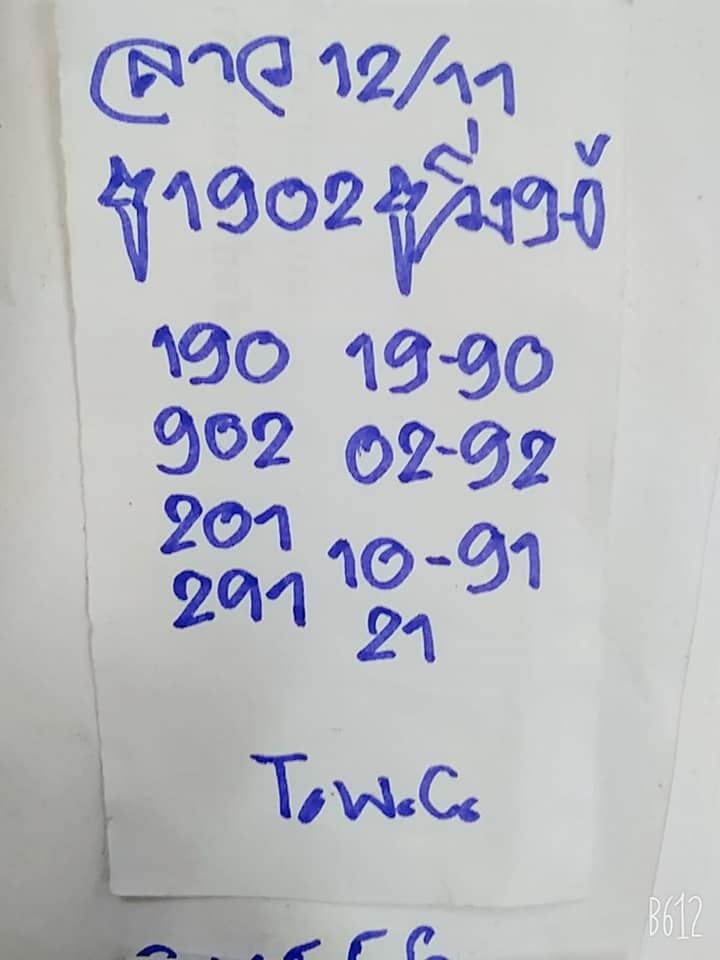 ลาว 12/11
1902 วิ่ง 9-0
190 19-90
902 02-92
201 10-91
291 21
T.W.C.
B612